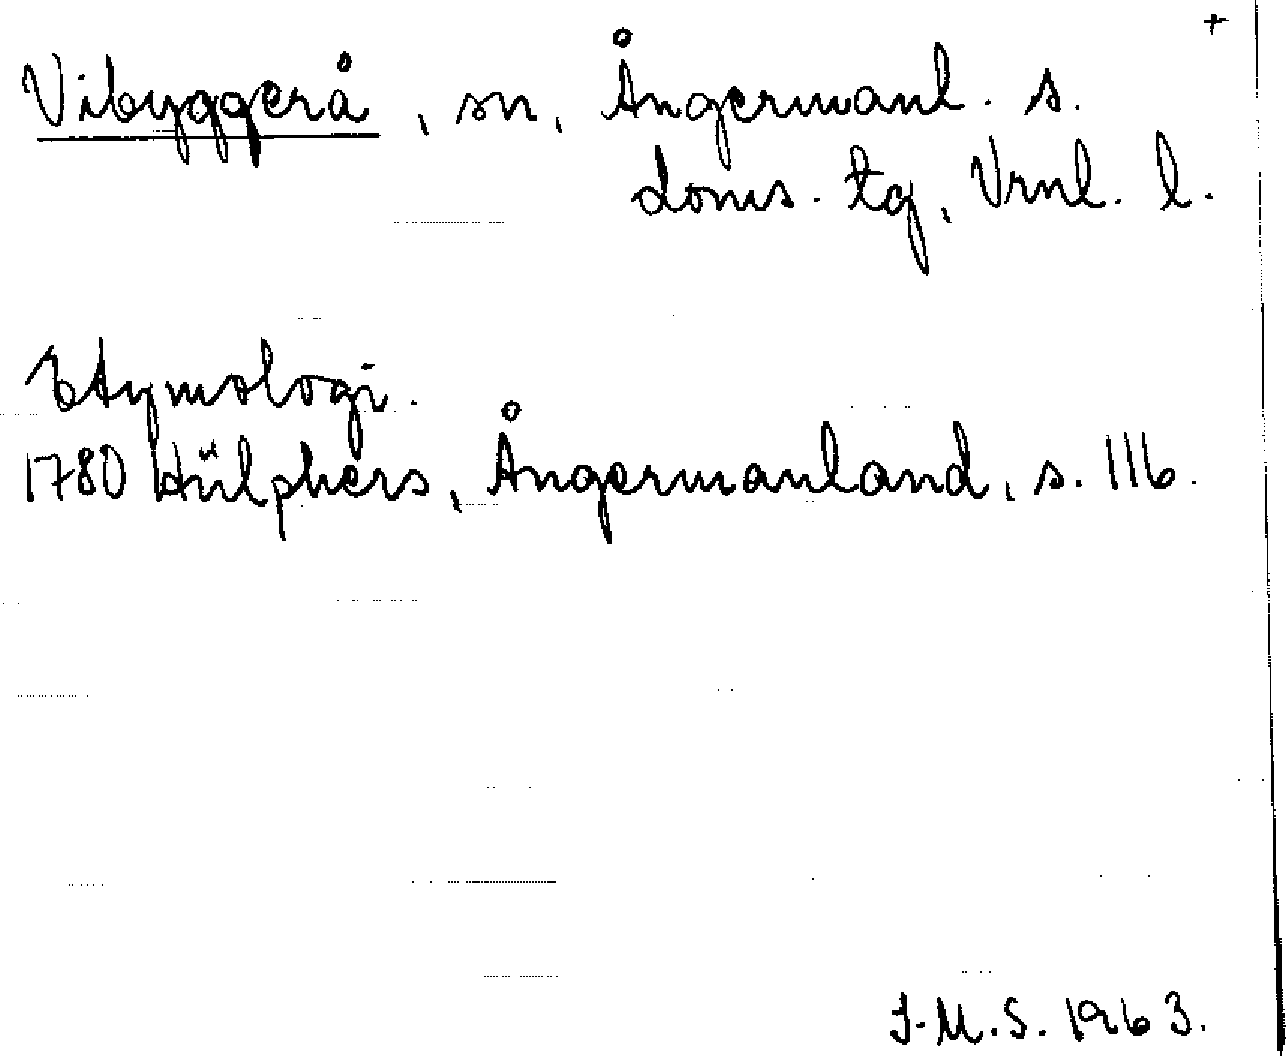 +
Vibyggerå, sn, Ångermanl. s.
doms. tg, Vrnl. l.
Etymologi.
1780 Hülphers, Ångermanland, s. 116.
J.M.S. 1963.